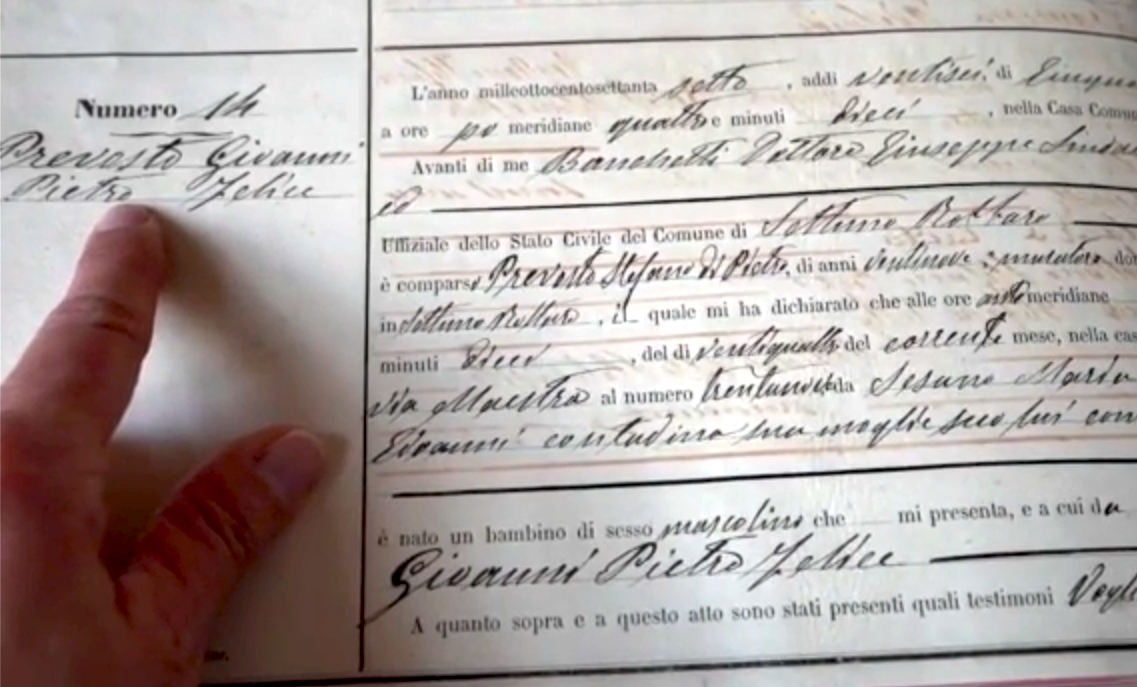 Numero 14
Prevosto Giovanni
Pietro Felice
L'anno milleottocentosettanta sette, addì ventisei di Giugno
a ore po meridiane quattro e minuti dieci, nella Casa Comu
Avanti di me Banchetti Dottore Giuseppe Sindac
ed
Uffiziale dello Stato Civile del Comune di Settimo Rottaro
è comparso Prevosto Stefano di Pietro, di anni ventinove, muratore do
in Settimo Rottaro, il quale mi ha dichiarato che alle ore anti meridiane
minuti dieci, del dì ventiquattro del corrente mese, nella cas
via Maestra al numero da Maria
Giovanni contadina sua moglie seco lui con
è nato un bambino di sesso mascolino che mi presenta, e a cui da
Giovanni Pietro Felice
A quanto sopra e a questo atto sono stati presenti quali testimoni Vogli